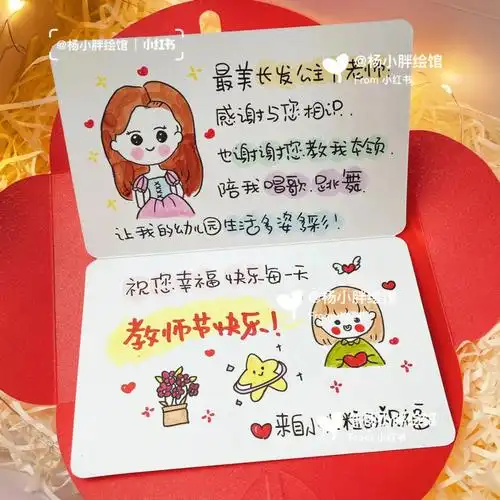 @杨小胖绘馆 | 小红书
@杨小胖绘馆
From 小红书
最美长发公主 老师:
感谢与您相识.
也谢谢您教我本领.
陪我唱歌.跳舞.
让我的幼儿园生活多姿多彩!
祝您幸福快乐每一天
@杨小胖绘馆
From 小红书
教师节快乐!
来自小 粒的祝福
@杨小胖绘馆
From 小红书